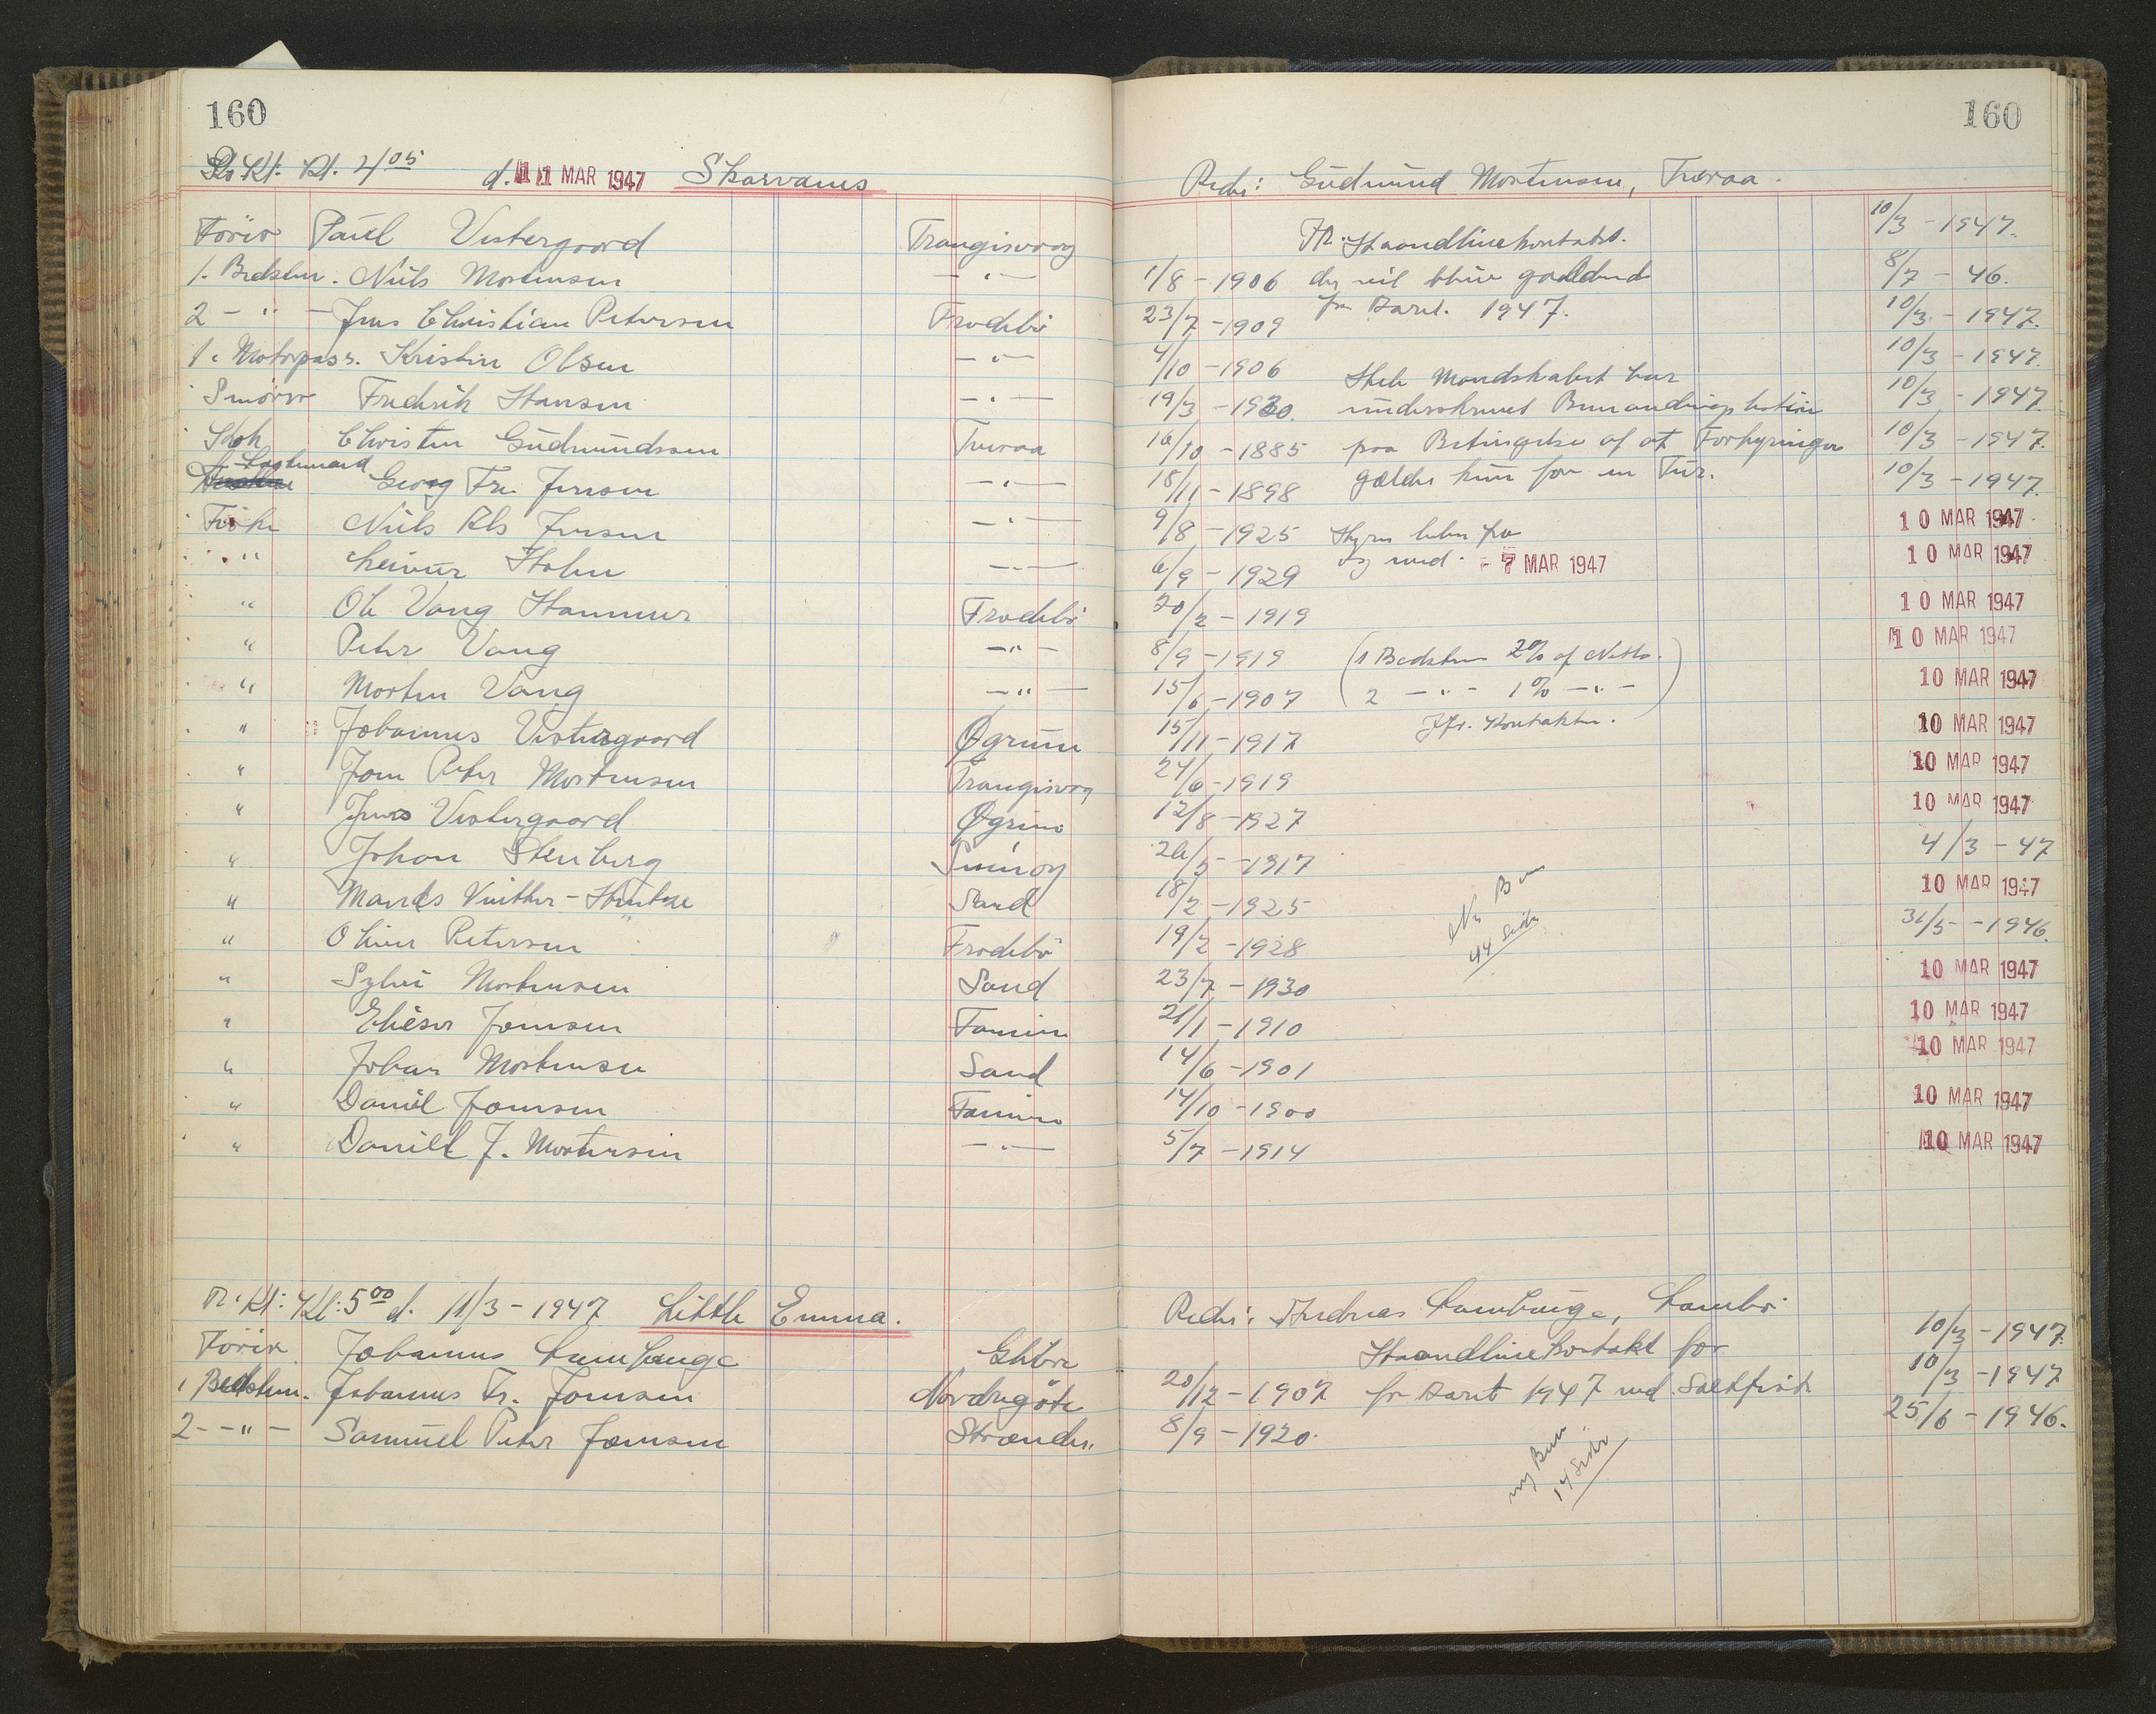 160
Kl. 4 05 d. 11 MAR 1947 Skarvanes
Förer Paul Vestergaard Trangisvaag
1. Bedstm. Niels Mortensen — " —
2 — " — Jens Christian Petersen Frodebö
1. Motorpass. Kristen Olsen — " —
Smörer Fredrik Hansen — " —
Kok Christen Gudmundsen Tveraa
Georg Fr. Jensen — " —
Fisker Niels Jensen — " —
" Heinur Holm — " —
" Ole Vang Hammer Frodebö
" Peter Vang — " —
" Morten Vang — " —
" Johannes Vestergaard Øgrum
" Jom Peter Mortensen Trangisvog
" Jens Vestergaard Øgrum
" Johan Stenberg
" Mands Vinther - Sand
" Oliver Petersen Frodebö
" Sylvei Mortensen Sand
" Elieser Jomsen Famien
" Johan Mortensen Sand
" Daniel Jomsen Famien
" Daniell J. Mortensen — " —
Kl: 5 00 d. 11/3 - 1947 Little Emma.
Förer Johannes Lamhauge Glibre
1 Bedstm. Johannes Fr. Jomsen Nordregöte
2 — " — Samuel Peter Jomsen Strender.
160
Reder: Gudmund Mortensen, Tveraa.
Haandlinekontrakt. 10/3 - 1947.
1/8 - 1906 der vil blive gældende 8/7 - 46.
23/7 - 1909 for Aaret 1947. 10/3 - 1947.
4/10 - 1906 10/3 - 1947.
Hele Mandskabet har
19/3 - 1930. underskrevet Bemandingslisten 10/3 - 1947
16/10 - 1885 paa Betingelse af at Forhyringen 10/3 - 1947.
18/11 - 1898 gælder kun for en Tur. 10/3 - 1947.
9/8 - 1925 Hyren løber fra 10 MAR 1947
6/9 - 1929 og med 7 MAR 1947 10 MAR 1947
20/2 - 1919 10 MAR 1947
8/9 - 1919 (1 Bedstem 2% af Netto. 10 MAR 1947
15/6 - 1907 (2 — " — 1% — " —) 10 MAR 1947
15/11 - 1917 Jfr. Kontrakten. 10 MAR 1947
24/6 - 1919 10 MAR 1947
12/8 - 1927 10 MAR 1947
26/5 - 1917 4/3 - 47
18/2 - 1925 10 MAR 1947
19/2 - 1928 31/5 - 1946.
44 Sider
23/7 - 1930 10 MAR 1947
21/1 - 1910 10 MAR 1947
14/6 - 1901 10 MAR 1947
14/10 - 1900 10 MAR 1947
5/7 - 1914 10 MAR 1947
Reder: Andreas Lamhauge, Lambö
Haandlinekontrakt for 10/3 - 1947.
20/12 - 1907 for Aaret 1947 med Saltfisk 10/3 - 1947
8/9 - 1920. 25/6 - 1946.
14 Sider